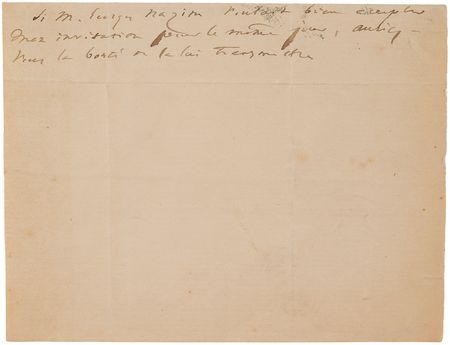 Si M. Georges Nazim voulait bien accepter
mon invitation pour le même jour, auriez-
vous la bonté de la lui transmettre